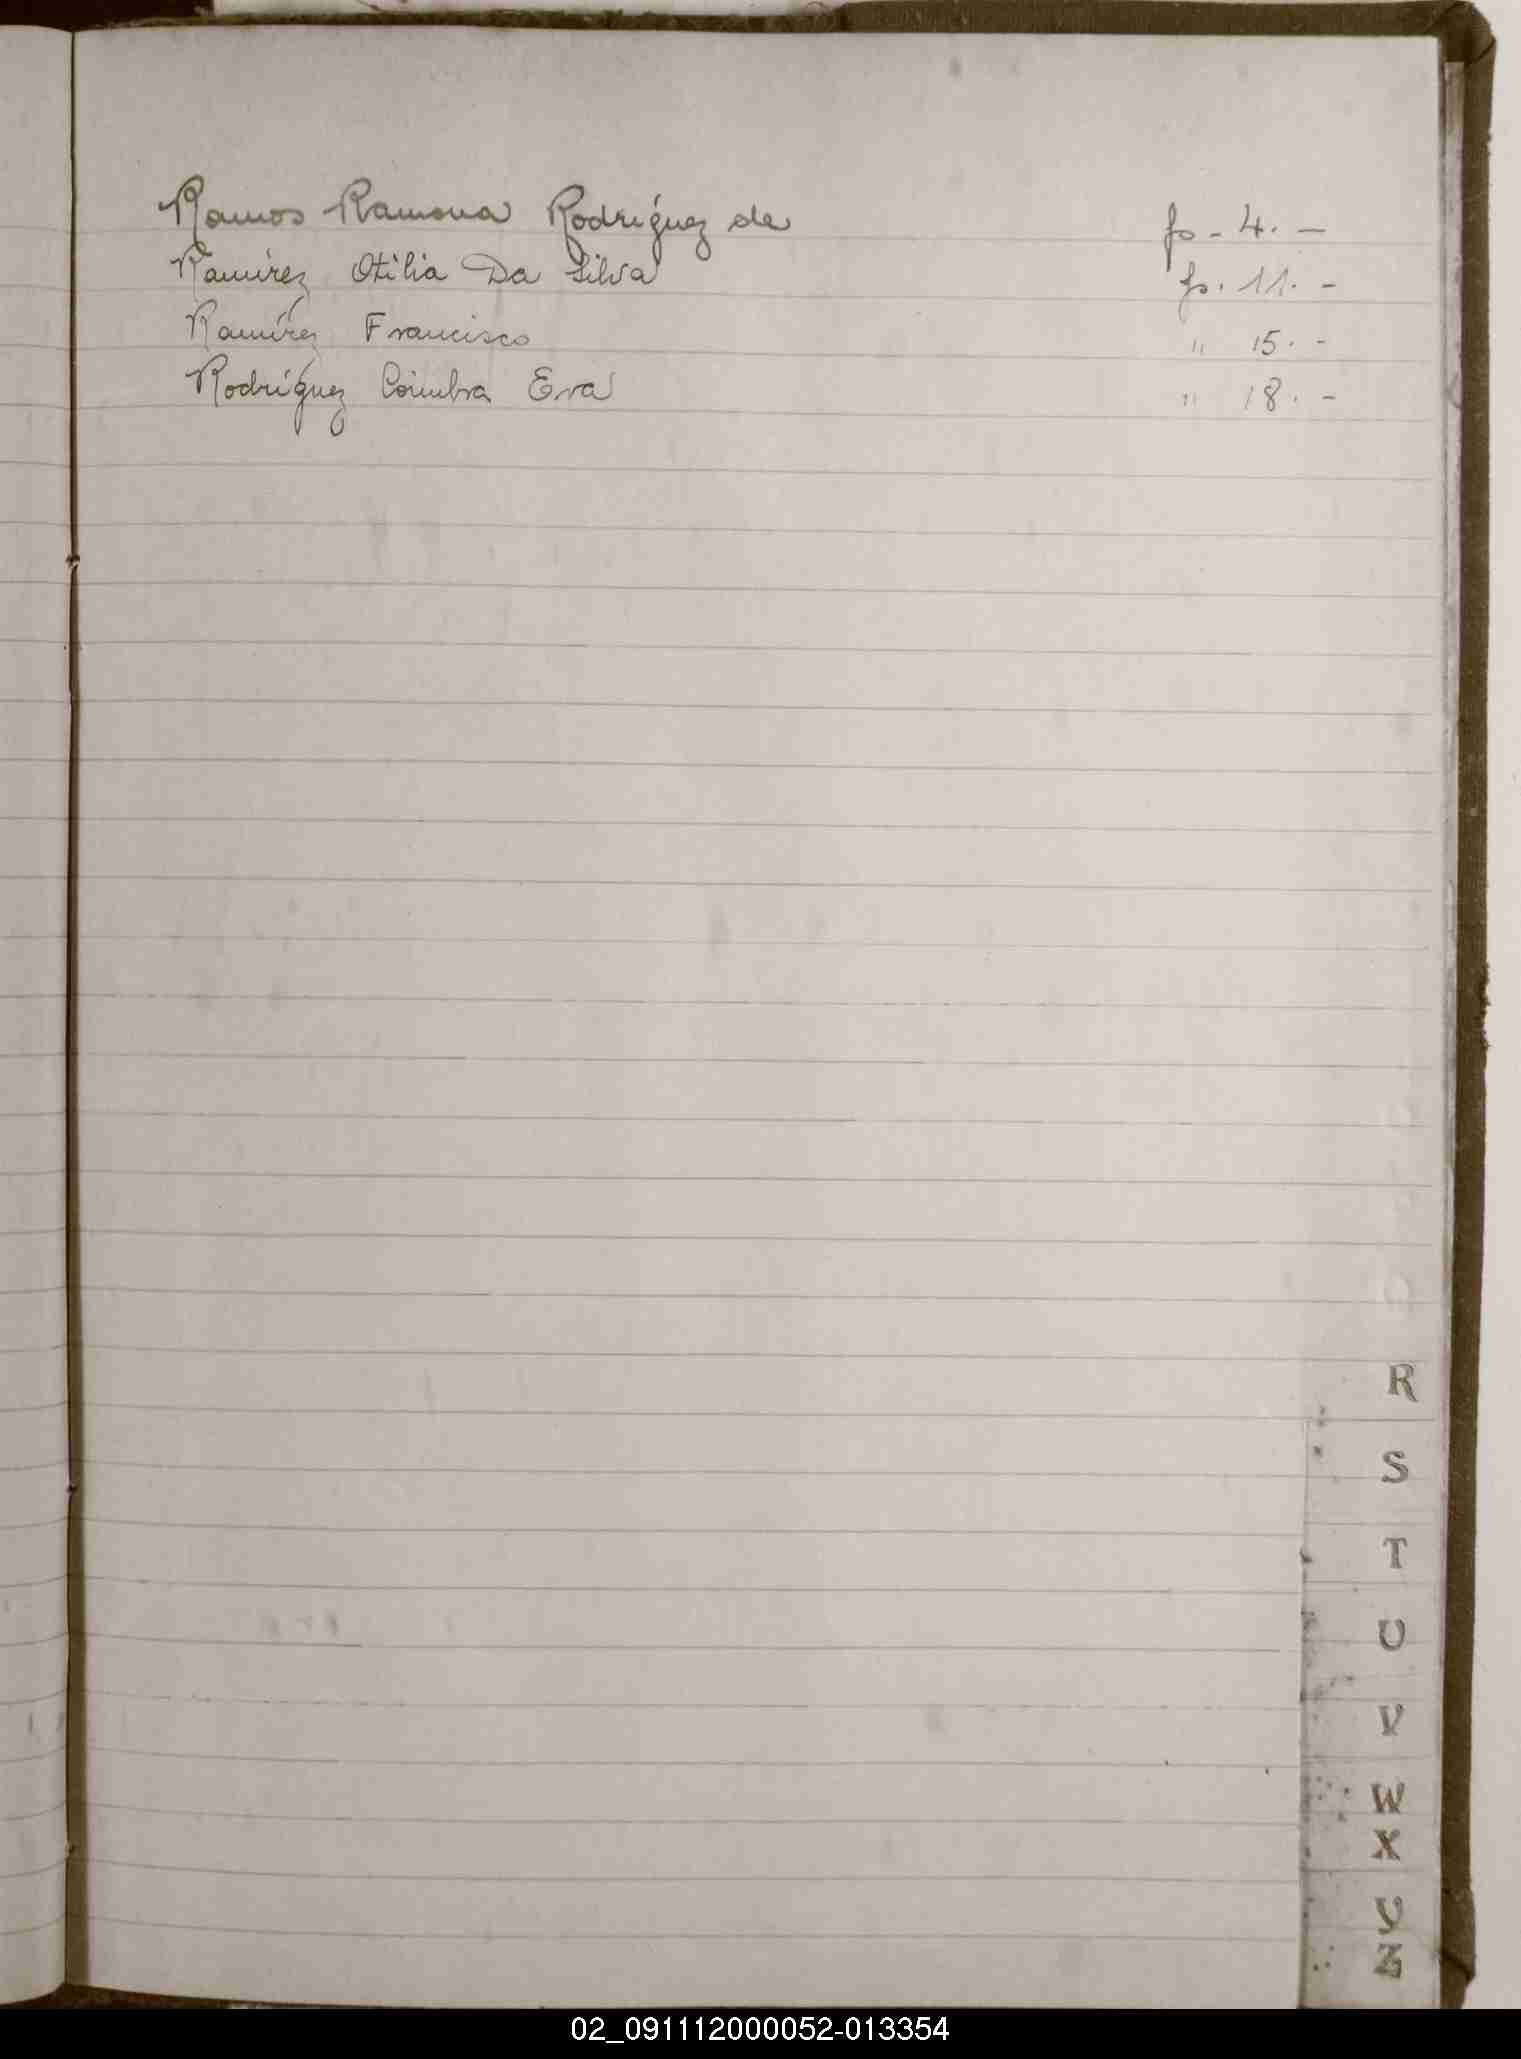 Ramos Ramona Rodríguez de fs - 4. -
Ramírez Otilia Da Silva fs. 11. -
Ramírez Francisco " 15. -
Rodríguez Coimbra Eva " 18. -
R
S
T
U
V
W
X
Y
Z
02_091112000052-013354